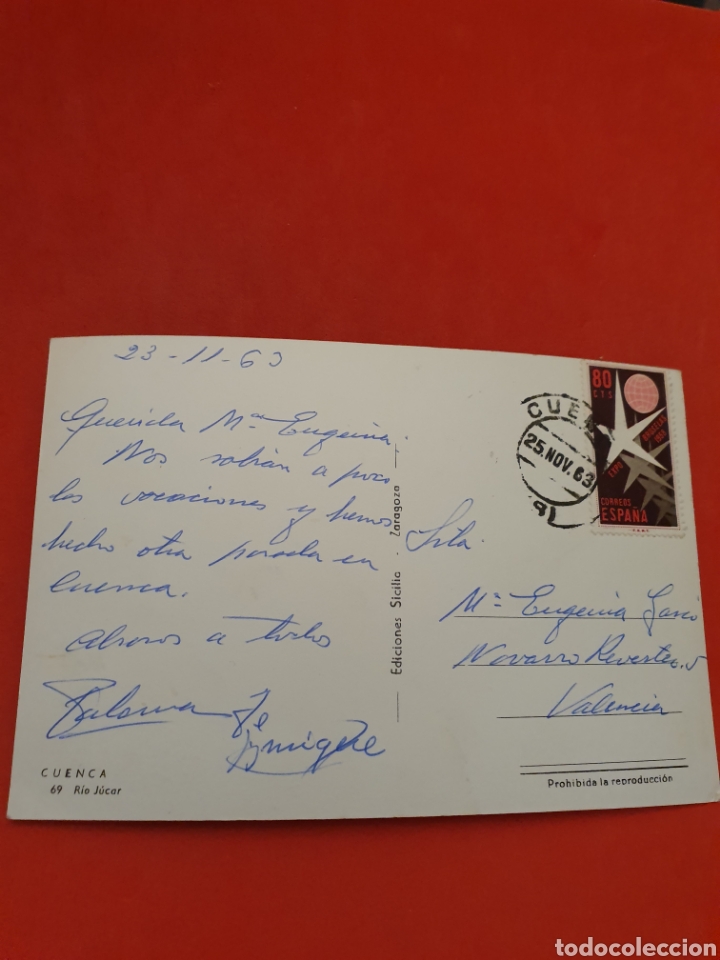 23-11-63
Querida Mª Eugenia.
Nos sabían a poco
las vacaciones y hemos
hecho otra parada en
Cuenca.
Abrazos a todos
Paloma
CUENCA
69 Río Júcar
Ediciones Sicilia - Zaragoza
CUEN
25.NOV.63
80
CTS
EXPO BRUSELAS 1958
CORREOS
ESPAÑA
Srta.
Mª Eugenia
Navarro Reverter, 5
Valencia
Prohibida la reproducción
todocoleccion